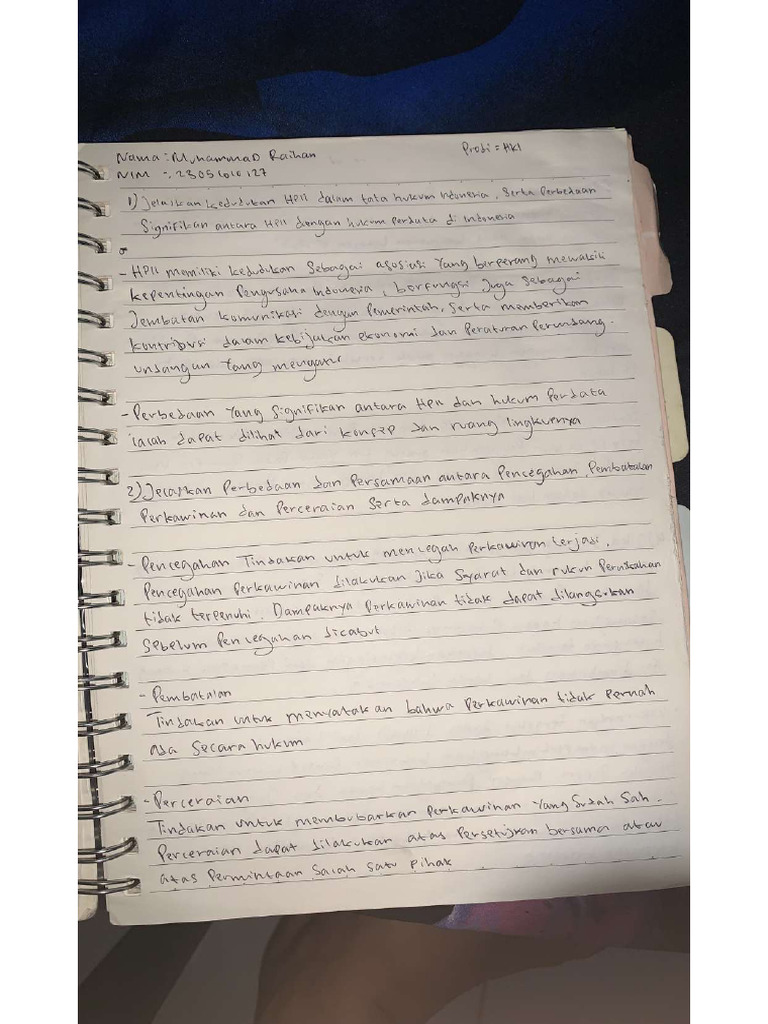 Nama : Muhammad Raihan Prodi = HKI
NIM : 23051010127
1) Jelaskan kedudukan HPII dalam tata hukum Indonesia, serta Perbedaan
Signifikan antara HPII dengan hukum Perdata di Indonesia
- HPII memiliki kedudukan Sebagai asosiasi Yang berperang mewakili
kepentingan Pengusaha Indonesia, berfungsi Juga Sebagai
Jembatan komunikasi dengan Pemerintah, Serta memberikan
kontribusi dalam kebijakan ekonomi dan Peraturan Perundang-
undangan Yang mengatur
- Perbedaan Yang Signifikan antara HPII dan hukum Perdata
ialah dapat dilihat dari konsep dan ruang lingkupnya
2) Jelaskan Perbedaan dan Persamaan antara Pencegahan, Pembatalan
Perkawinan dan Perceraian Serta dampaknya
- Pencegahan Tindakan untuk mencegah Perkawinan terjadi,
Pencegahan Perkawinan dilakukan Jika Syarat dan rukun Pernikahan
tidak terpenuhi. Dampaknya Perkawinan tidak dapat dilangsukan
Sebelum Pencegahan dicabut
- Pembatalan
Tindakan untuk menyatakan bahwa Perkawinan tidak Pernah
Ada Secara hukum
- Perceraian
Tindakan untuk membubarkan Perkawinan Yang Sudah Sah.
Perceraian dapat dilakukan atas Persetujuan bersama atau
atas Permintaan Salah Satu Pihak